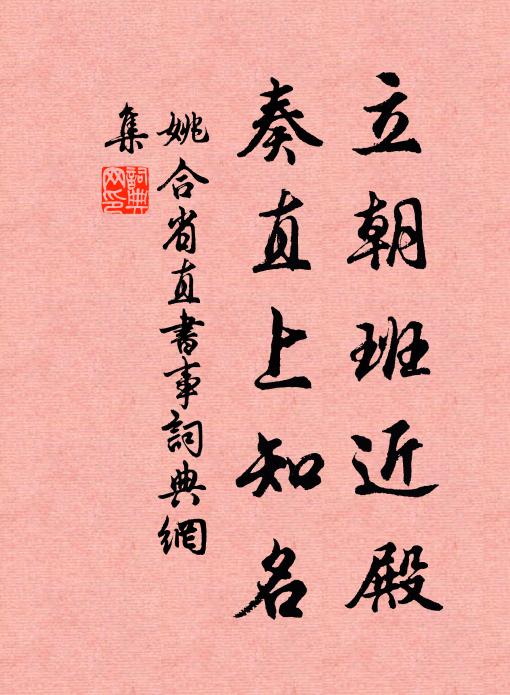 立朝班近殿
奏直上知名
姚合省直書事詞典網
集
詞典網印